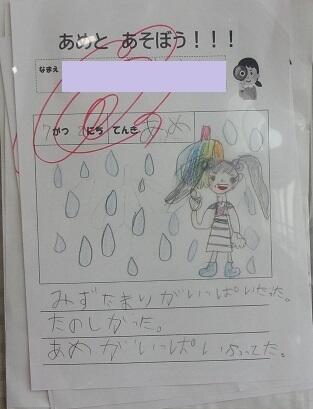 あめと あそぼう!!!
なまえ
7がつ にち てんき あめ
みずたまりがいっぱいだった。
たのしかった。
あめがいっぱいふってた。